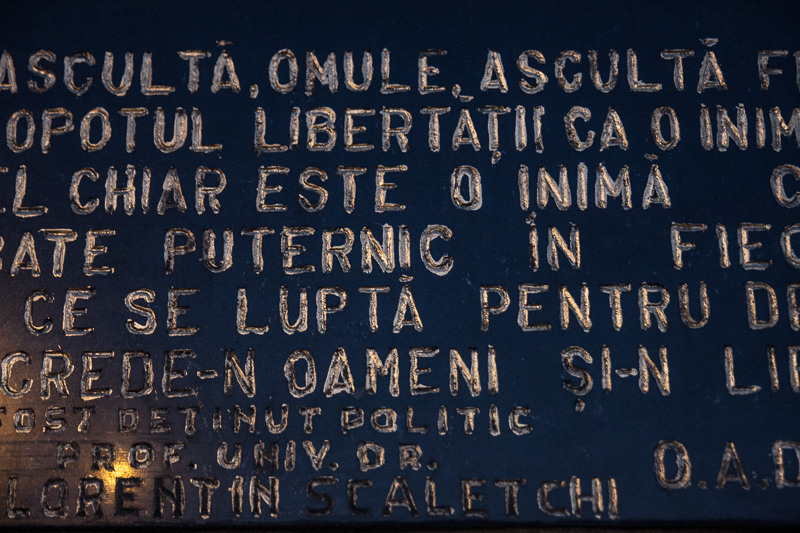 ASCULTĂ, OMULE, ASCULTĂ
OPOTUL LIBERTĂȚII CA O INIM
EL CHIAR ESTE O INIMĂ
RATE PUTERNIC ÎN FIEC
CE SE LUPTĂ PENTRU
CREDE-N OAMENI ȘI-N LI
FOST DEȚINUT POLITIC
PROF. UNIV. DR.
FLORENTIN SCALEȚCHI O.A.D